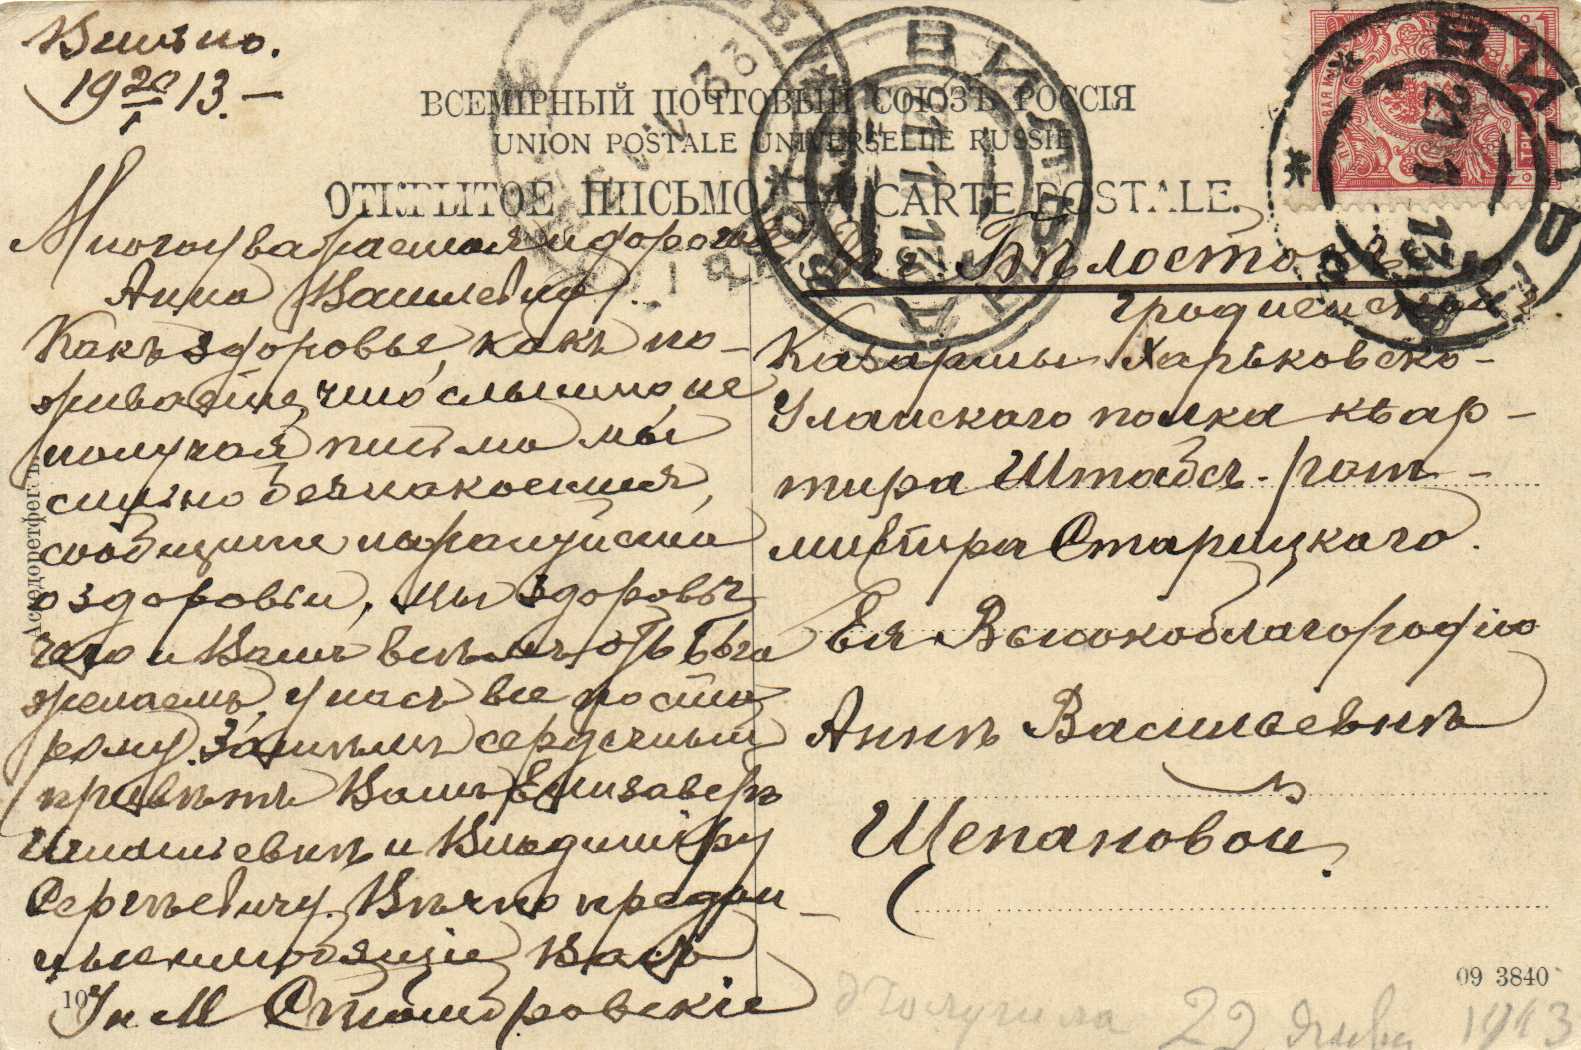 Вильно.
19 20/I 13. –
ВСЕМІРНЫЙ ПОЧТОВЫЙ СОЮЗЪ РОССІЯ
UNION POSTALE UNIVERSELLE RUSSIE
ОТКРЫТОЕ ПИСЬМО — CARTE POSTALE.
Многоуважаемая и дорогая
Анна Васильевна!
Какъ здоровье, какъ по-
живаете, что слышно, не
получая письма мы
сильно безпокоемся,
сообщите пожалуйста
о здоровьи, мы здоровы
чего и Вамъ всѣмъ отъ Бога
желаемъ, у насъ все по ста
рому. Зашлемъ сердечный
привѣтъ Вамъ, Елизаветѣ
Игнатьевнѣ и Владиміру
Сергѣевичу. Вѣчно предан-
ные и любящіе Васъ
И и М
Въ г. Бѣлостокъ
Гродненской г.
Казармы Харьковско-
Уланскаго полка квар-
тира Штабсъ-рот-
мистра Старицкаго.
Ея Высокоблагородію
Аннѣ Васильевнѣ
Щепановой.
09 3840
Получила 22 Января 1913
ВИЛЬНА
21 1 13
ВИЛЬНА